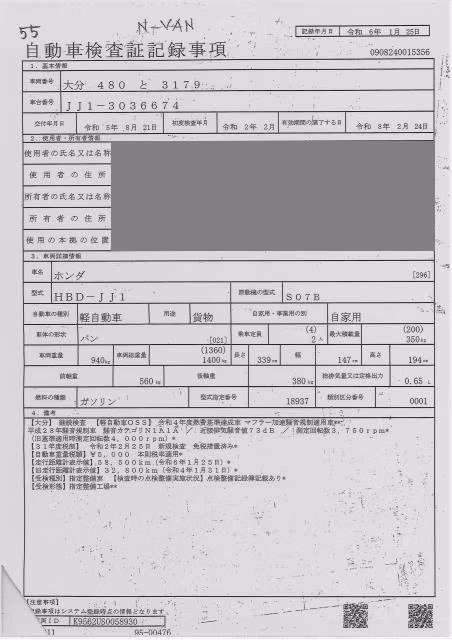 55
N-VAN
記録年月日 令和 6年 1月 25日
自動車検査証記録事項
0908240015356
1. 基本情報
車両番号 大分 480 と 3179
車台番号 JJ1-3036674
交付年月日 令和 5年 8月 21日 初度検査年月 令和 2年 2月 有効期間の満了する日 令和 8年 2月 24日
2. 使用者・所有者情報
使用者の氏名又は名称
使用者の住所
所有者の氏名又は名称
所有者の住所
使用の本拠の位置
3. 車両詳細情報
車名 ホンダ [296]
型式 HBD-JJ1 原動機の型式 S07B
自動車の種別 軽自動車 用途 貨物 自家用・事業用の別 自家用
車体の形状 バン [021] 乗車定員 (4) 2人 最大積載量 (200) 350kg
車両重量 940kg 車両総重量 (1360) 1400kg 長さ 339cm 幅 147cm 高さ 194cm
前軸重 560kg 後軸重 380kg 総排気量又は定格出力 0.65 L
燃料の種類 ガソリン 型式指定番号 18937 類別区分番号 0001
4. 備考
【大分】 継続検査 【軽自動車OSS】 令和4年度燃費基準達成車 マフラー加速騒音規制適用車**
平成28年騒音規制車 騒音カテゴリN1A1A / 近接排気騒音値73dB / 測定回転数3,750rpm*
(旧基準適用時測定回転数4,000rpm)*
【31年度税制】 令和2年2月25日 新規検査 免税措置済み*
【自動車重量税額】¥5,000 本則税率適用*
【走行距離計表示値】58,500km(令和6年1月25日)*
【旧走行距離計表示値】32,800km(令和4年1月31日)*
【受検種別】指定整備車 【検査時の点検整備実施状況】点検整備記録簿記載あり*
【受検形態】指定整備工場**
【注意事項】
記録事項はシステム登録時点の情報となります
両ID K9562US0058930
95-00476